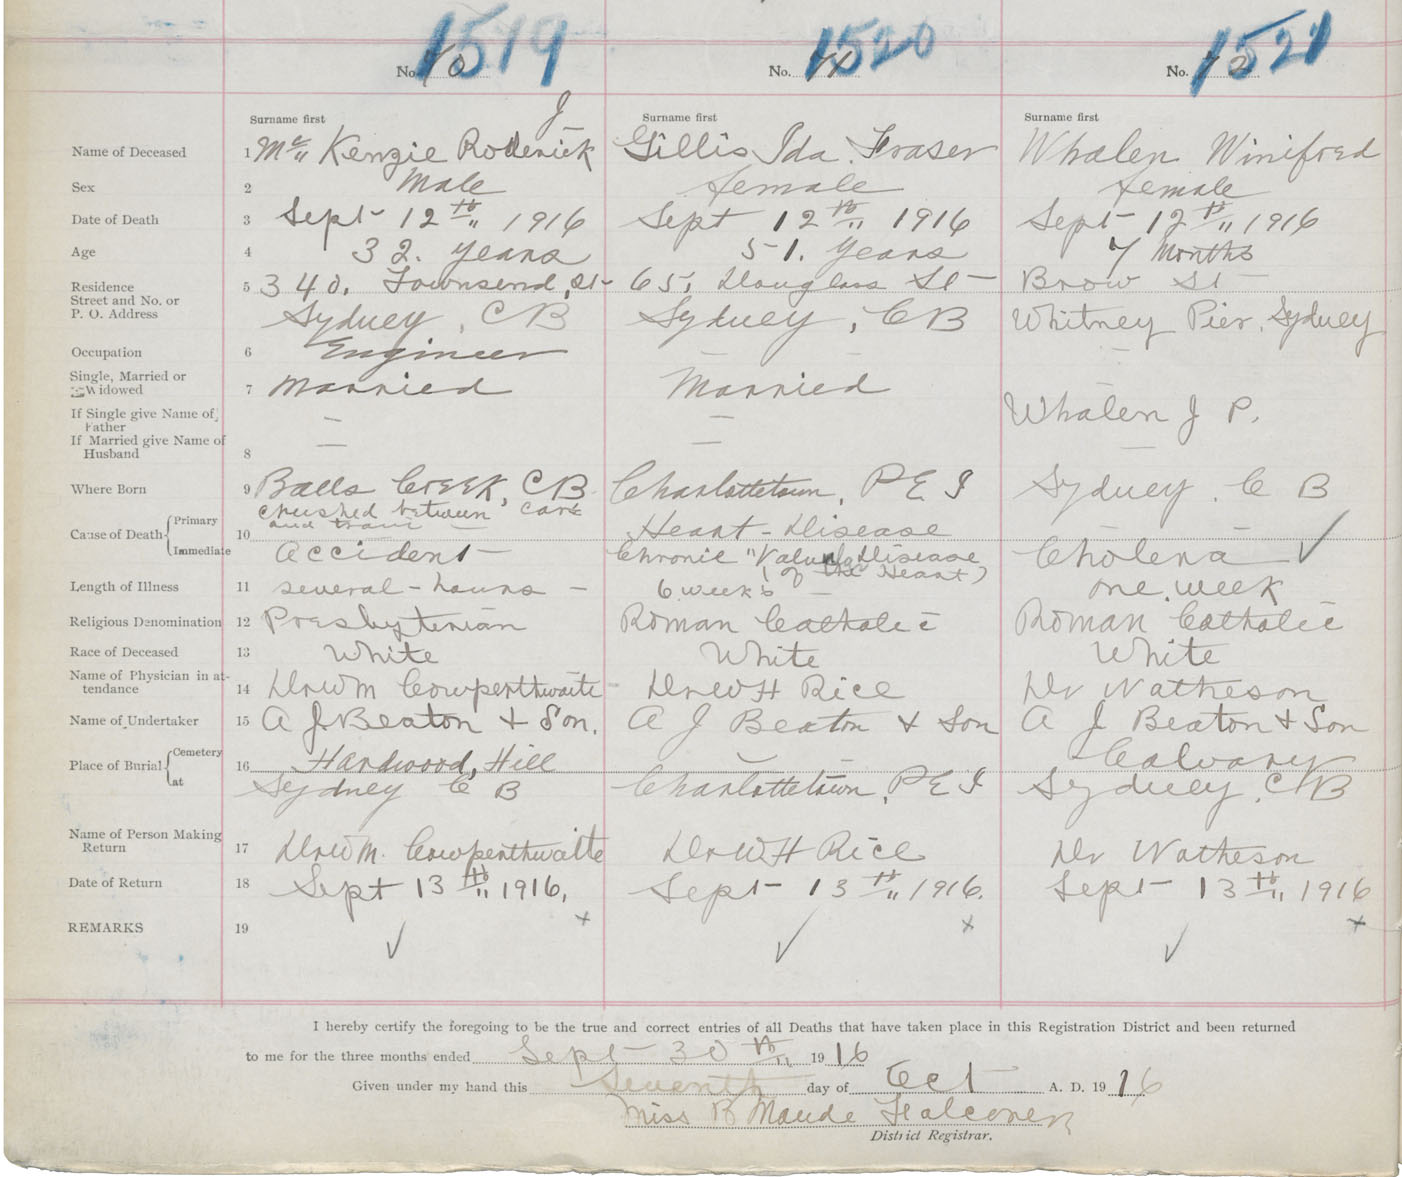 1519 1520 1521
No. 70 No. 71 No. 72
Surname first J Surname first Surname first
Name of Deceased 1 Mc Kenzie Roderick Gillis Ida Fraser Whalen Winifred
Sex 2 Male Female Female
Date of Death 3 Sept 12th 1916 Sept 12th 1916 Sept 12th 1916
Age 4 32. years 51. years 7 Months
Residence 5 340. Townsend St 65, Douglass St Brow St
Street and No. or
P. O. Address Sydney, CB Sydney, CB Whitney Pier, Sydney
Occupation 6 Engineer — —
Single, Married or
Widowed 7 Married Married —
If Single give Name of
Father — — Whalen J P.
If Married give Name of
Husband 8 — — —
Where Born 9 Balls Creek, CB Charlottetown, P E I Sydney, C B
crushed between cars
Cause of Death Primary 10 and train — Heart Disease
Immediate Accident Chronic "Valvular Disease Cholera ✓
(of the Heart)
Length of Illness 11 several hours — 6 weeks — one week
Religious Denomination 12 Presbyterian Roman Catholic Roman Catholic
Race of Deceased 13 White White White
Name of Physician in at-
tendance 14 Dr W M Cowperthwaite Dr W H Rice Dr Watheson
Name of Undertaker 15 A J Beaton & Son. A J Beaton & Son A J Beaton & Son
Place of Burial Cemetery 16 Hardwood, Hill — Calvary
at Sydney C B Charlottetown, P E I Sydney, CB
Name of Person Making
Return 17 Dr W M. Cowperthwaite Dr W H Rice Dr Watheson
Date of Return 18 Sept 13th 1916, Sept 13th 1916. Sept 13th 1916
REMARKS 19 ✓ x ✓ x ✓ x
I hereby certify the foregoing to be the true and correct entries of all Deaths that have taken place in this Registration District and been returned
to me for the three months ended Sept 30th 1916
Given under my hand this Seventh day of Oct A. D. 1916
Miss B Maude Falconer
District Registrar.